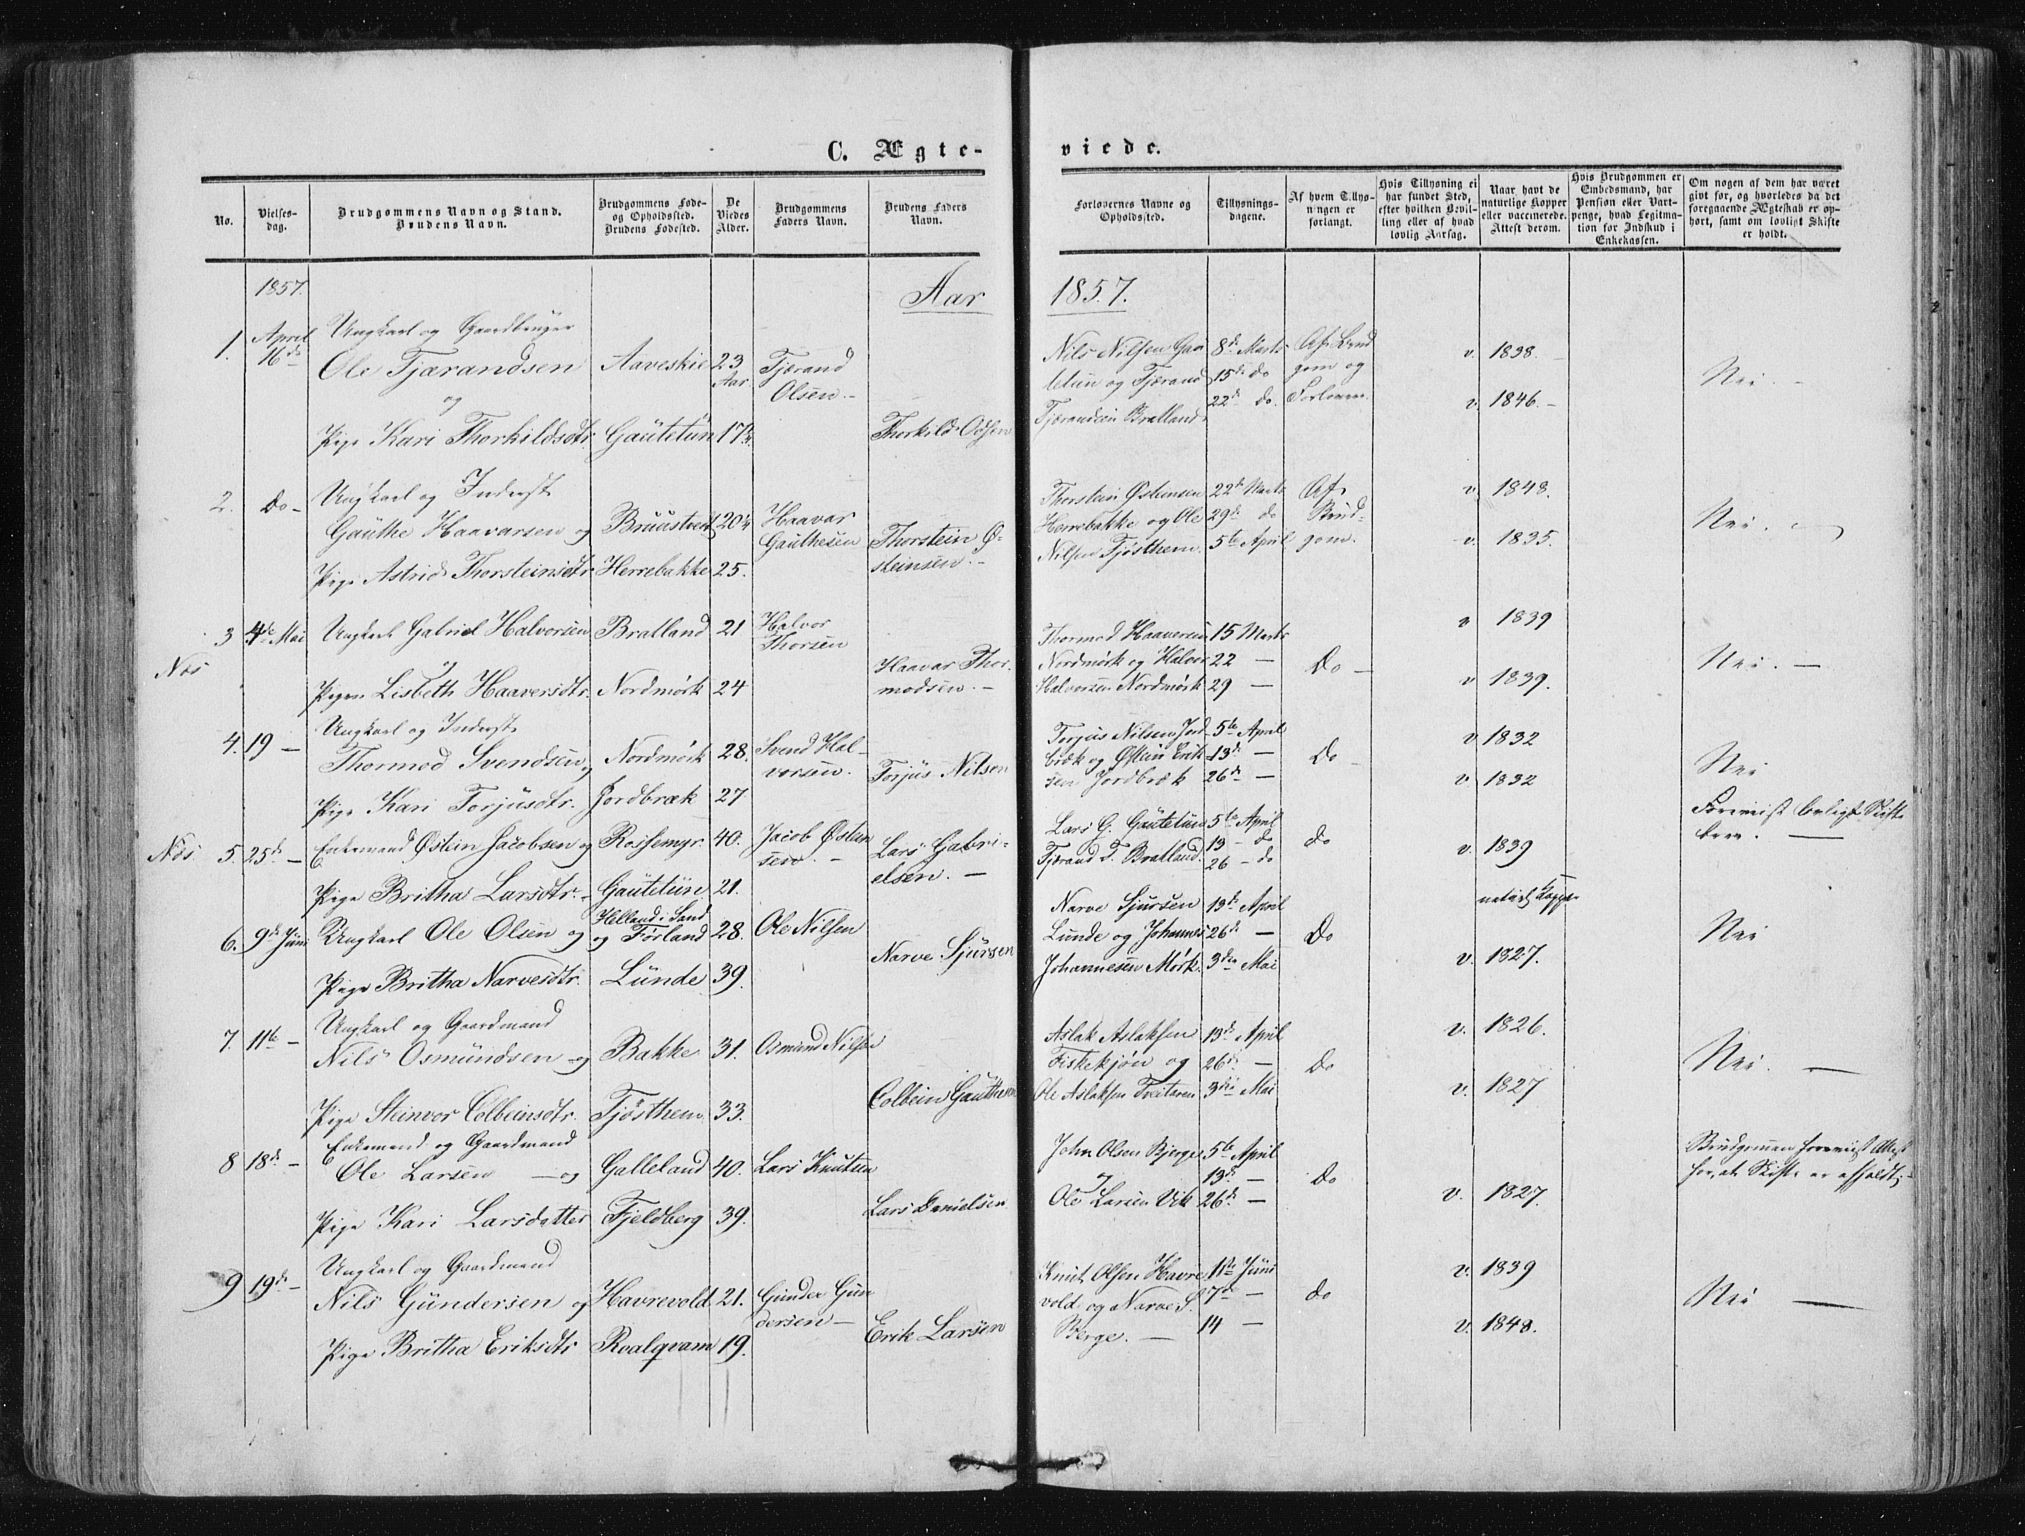 C. Ægte-
viede.
No.
Vielses-
dag.
Brudgommens Navn og Stand.
Brudens Navn.
Brudgommens Føde-
og Opholdssted.
Brudens Fødested.
De
Viedes
Alder.
Brudgommens
Faders Navn.
Brudens Faders
Navn.
Forlovernes Navne og
Opholdssted.
Tillysnings-
dagene.
Af hvem Tillys-
ningen er
forlangt.
Hvis Tillysning ei
har fundet Sted,
efter hvilken Bevil-
ling eller af hvad
lovlig Aarsag.
Naar havt de
naturlige Kopper
eller vaccinerede.
Attest derom.
Hvis Brudgommen er
Embedsmand, har
Pension eller Vart-
penge, hvad Legitima-
tion for Indskud i
Enkekassen.
Om nogen af dem har været
gift før, og hvorledes da det
foregaaende Ægteskab er op-
hørt, samt om lovligt Skifte
er holdt.
1857.
Aar
1857.
1.
April
16de
Ungkarl og Gaardbruger
Ole Tjærandsen
og
Pige Kari Thorkildsdtr.
Aaveskie
Gautetun
23
Aar
17
Tjærand
Olsen.
Thorkild
Nils Nilsen Gau
tetun og Tjærand
Tjærandsen Bratland
8de Marts
15de do
22de do
Af Brud
gom og
Forlover.
v. 1838.
v. 1846.
Nei.
2.
Do
Ungkarl og Inderst
Gauthe Haavarsen og
Pige Astrid Thorsteinsdtr.
Bruustveit
Herrebakke
20
25.
Haavar
Gauthesen
Thorstein Ø-
steinsen.
Thorstein Østensen
Herrebakke og Ole
Nilsen Tjøsthem.
22de Marts
29de do
5te April
Af
Brud
gom.
v. 1848.
v. 1835.
Nei.
3
4de Mai
Ungkarl Gabriel Halvorsen
og
Pigen Lisbeth Haaversdtr.
Bratland
Nordmørk
21
24
Halvor
Thorsen
Haavar Thor-
modsen.
Thormod Haaversen
Nordmørk og Halvor
Halvorsen Nordmørk
15 Marts
22 —
29 —
Do
v 1839
v 1839.
Nei.
4.
19 —
Ungkarl og Inderst
Thormod Svendsen og
Pige Kari Torjusdtr.
Nordmørk
Jordbræk
28.
27
Svend Hal-
vorsen.
Torjus Nilsen
Torjus Nilsen Jord
bræk og Østein Erik
sen Jordbræk
5te April
13de —
26de —
Do
v 1832
v 1832
Nei
5.
25de —
Enkemand Østein Jacobsen og
Pige Britha Larsdtr.
Rossemyr.
Gautetun
40.
21.
Jacob Østen
sen.
Lars Gabri-
elsen.
Lars G. Gautetun
Tjærand T. Bratland.
5te April
13 — do
26 — do
do
v. 1839
Foreviist lovligt Skifte
brev.
6.
9de Juni
Ungkarl Ole Olsen og
Pige Britha Narvesdtr.
Helland i Sand
og Førland
Lunde
28.
39.
Ole Nilsen
Narve Sjursen
Narve Sjursen
Lunde og Johannes
Johannesen Mørk.
13de April
26de —
3die Mai
Do
v. 1827.
Nei
7.
11te —
Ungkarl og Gaardmand
Nils Osmundsen og
Pige Steinvor Colbeinsdtr.
Bakke
Tjøsthem
31.
33.
Osmund Nilsen
Colbein Gauthesen
Aslak Aslaksen
Fiskekjøn og
Ole Aslaksen Tveitaren
13de April
26de —
3die Mai
Do
v. 1826.
v. 1827
Nei.
8
18de —
Enkemand og Gaardmand
Ole Larsen — og
Pige Kari Larsdatter
Galleland
Fjeldberg
40.
39.
Lars Knutsen
Lars Danielsen
John Olsen Bjerge
og
Ole Larsen Vik
5te April
13de —
26de —
Do
v. 1827.
Brudgommen foreviist Attest
for, at Skifte er afholdt;
9
19de —
Ungkarl og Gaardmand
Nils Gundersen og
Pige Britha Eriksdtr
Havrevold
Roalqvam
21.
19.
Gunder Gun
dersen
Erik Larsen
Knut Olsen Havre
vold og Narve S.
Berge.
7de —
14 —
do
v. 1839
v. 1848.
Nei